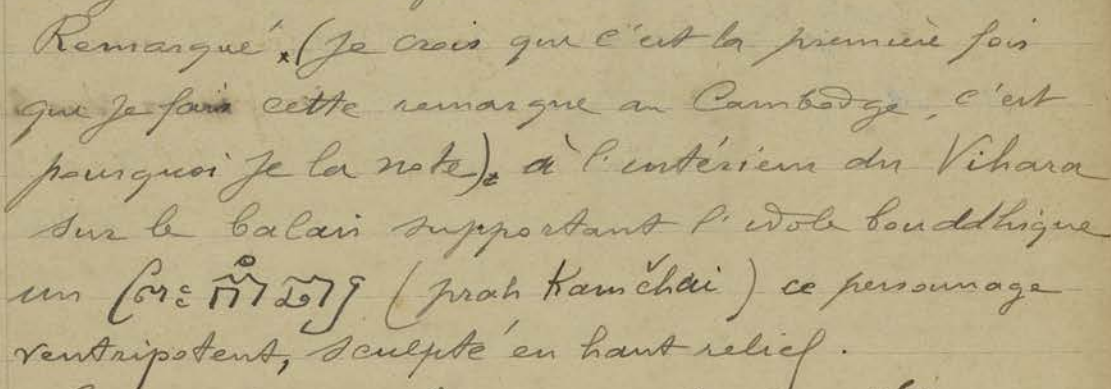 Remarqué *(Je crois que c'est la première fois
que Je fais cette remarque au Cambodge, c'est
pourquoi Je la note)* à l'intérieur du Vihara
sur le balai supportant l'idole bouddhique
un ព្រះកំចាយ (prah Kamčhai) ce personnage
ventripotent, sculpté en haut relief.